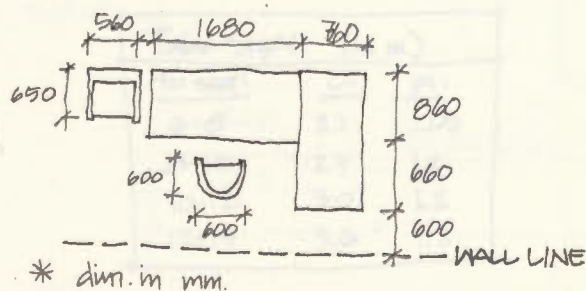 560 1680 760
650
860
600
660
600
600
WALL LINE
* dim. in mm.